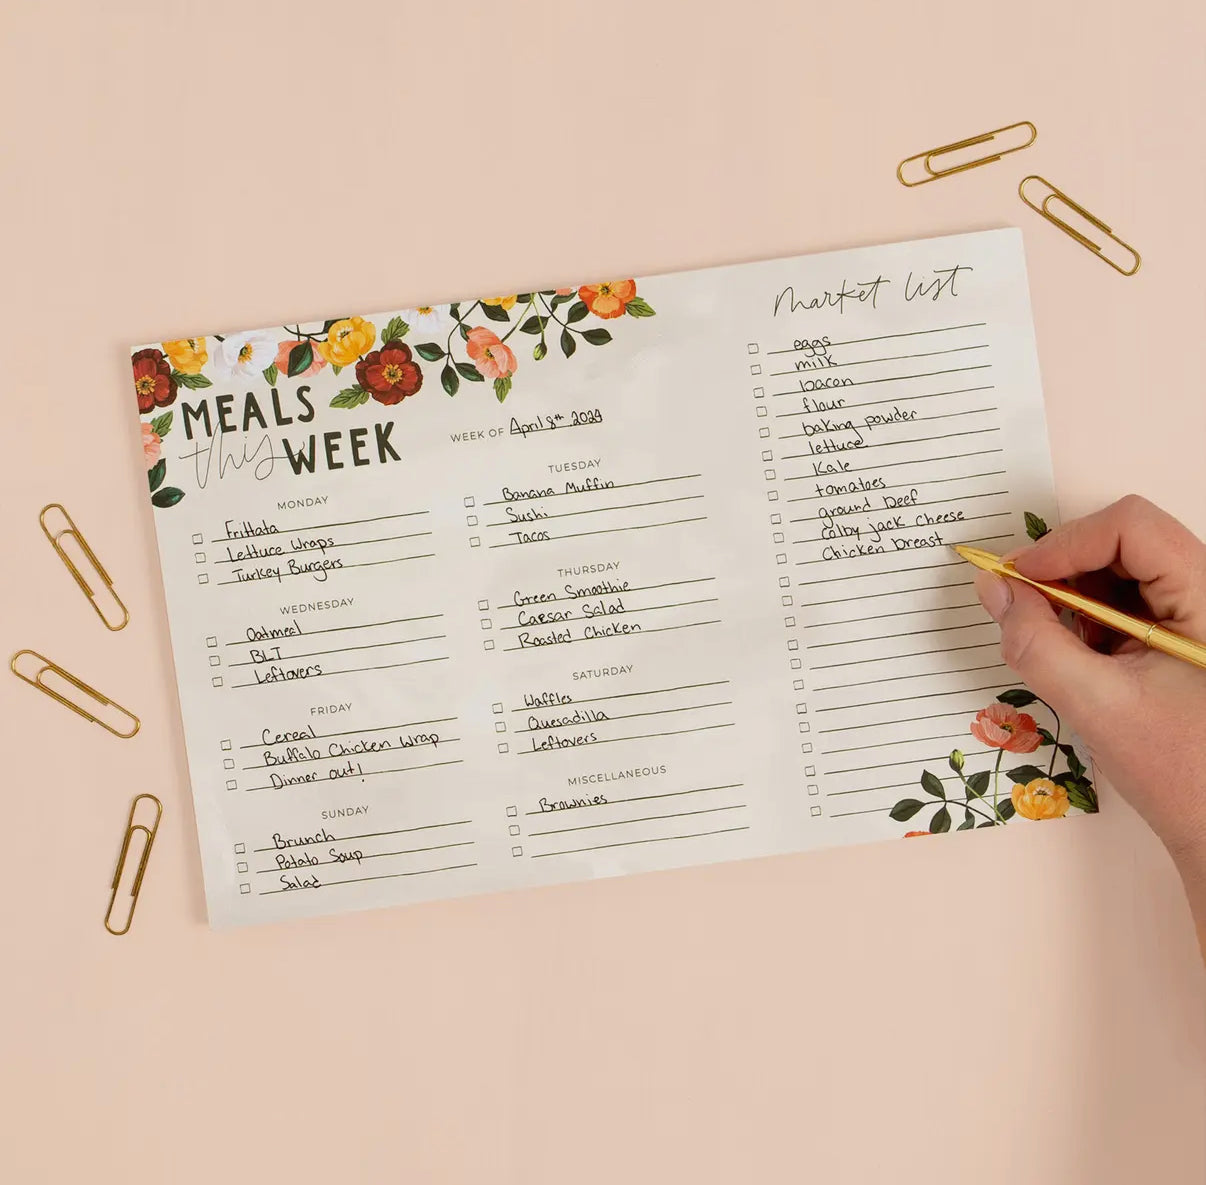 MEALS
this WEEK
WEEK OF April 8th 2024
MONDAY
Frittata
Lettuce Wraps
Turkey Burgers
TUESDAY
Banana Muffin
Sushi
Tacos
WEDNESDAY
Oatmeal
BLT
Leftovers
THURSDAY
Green Smoothie
Caesar Salad
Roasted Chicken
FRIDAY
Cereal
Buffalo Chicken Wrap
Dinner out!
SATURDAY
Waffles
Quesadilla
Leftovers
SUNDAY
Brunch
Potato Soup
Salad
MISCELLANEOUS
Brownies
market list
eggs
milk
bacon
flour
baking powder
lettuce
Kale
tomatoes
ground beef
colby jack cheese
Chicken breast